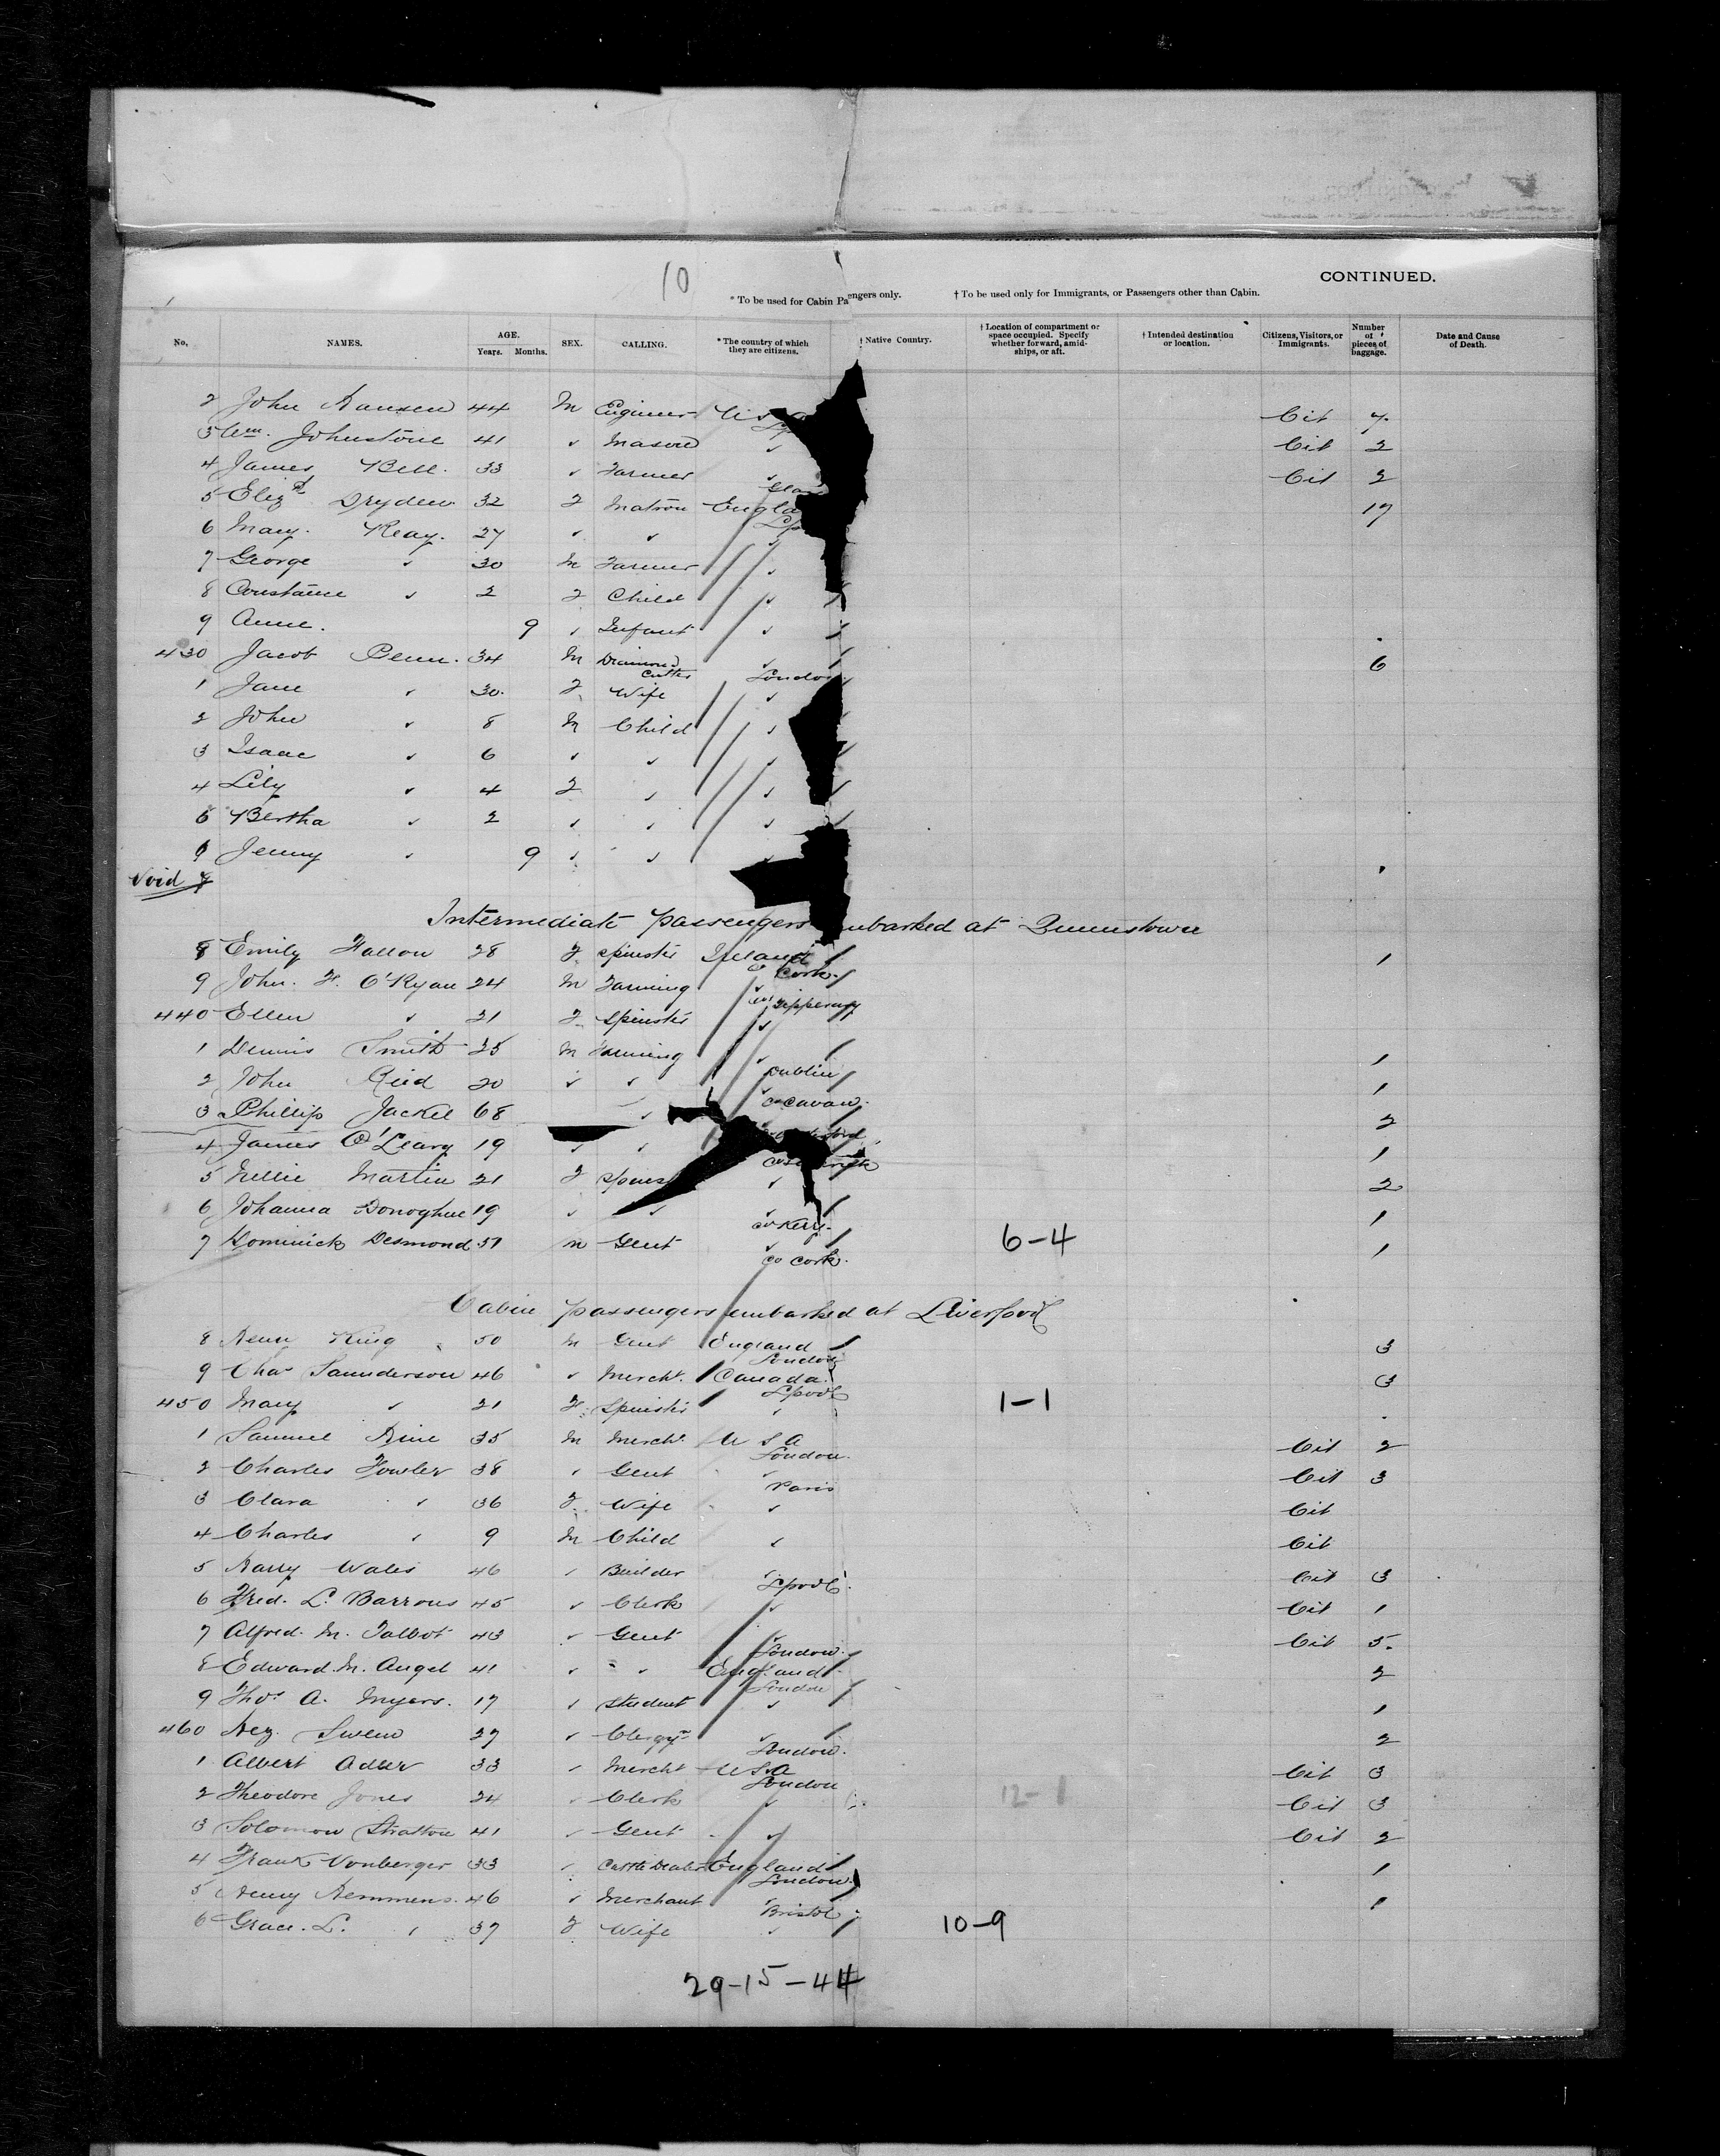 10
CONTINUED.
* To be used for Cabin Pa engers only. † To be used only for Immigrants, or Passengers other than Cabin.
No. NAMES. AGE. Years. Months. SEX. CALLING. * The country of which they are citizens. † Native Country. † Location of compartment or space occupied. Specify whether forward, amidships, or aft. † Intended destination or location. Citizens, Visitors, or Immigrants. Number of pieces of baggage. Date and Cause of Death.
2 John Hansen 44 M Engineer U S Cit 7
3 Wm. Johnstone 41 ✓ Mason ✓ Cit 2
4 James Bell. 33 ✓ Farmer Cit 2
5 Eliz Dryden 32 F Matron Engla 17
6 Mary. Keay. 27 ✓ ✓ ✓
7 George ✓ 30 M Farmer ✓
8 Constance ✓ 2 F Child ✓
9 Anne. 9 ✓ Infant ✓
430 Jacob Penn. 34 M Diamond Cutter ✓ London 6
1 Jane ✓ 30. F. Wife ✓
2 John ✓ 8 M Child ✓
3 Isaac ✓ 6 ✓ ✓ ✓
4 Lily ✓ 4 F ✓ ✓
5 Bertha ✓ 2 ✓ ✓ ✓
6 Jenny ✓ 9 ✓ ✓ ✓
Void 7
Intermediate passengers mbarked at Queenstown
8 Emily Fallon 28 F Spinster Ireland Cork. 1
9 John. F. O'Ryan 24 M Farming ✓ Tipperary
440 Ellen ✓ 21 F Spinster ✓
1 Dennis Smith 25 M Farming ✓ Dublin 1
2 John Reid 20 ✓ ✓ ✓ Co Cavan. 1
3 Phillip Jackel 68 ✓ 2
4 James O'Leary 19 ✓ ✓ 1
5 Nellie Martin 21 F Spins ✓ 2
6 Johanna Donoghue 19 ✓ ✓ ✓ Co Kerry. 1
7 Dominick Desmond 51 M Gent ✓ Co Cork. 6-4 1
Cabin passengers embarked at Liverpool
8 Henry King 50 M Gent England London 3
9 Chas Saunderson 46 ✓ Mercht. Canada. Lpool 3
450 Mary ✓ 21 F Spinster ✓ 1-1
1 Samuel 35 M Mercht. U S A London. Cit 2
2 Charles Fowler 38 ✓ Gent ✓ Paris Cit 3
3 Clara ✓ 36 F. Wife ✓ Cit
4 Charles ✓ 9 M Child ✓ Cit
5 Harry Wales 46 ✓ Builder ✓ Lpool. Cit 3
6 Fred. L. Barrows 45 ✓ Clerk ✓ Cit 1
7 Alfred. M. Talbot 43 ✓ Gent ✓ London. Cit 5.
8 Edward. M. Angel 41 ✓ ✓ England London 2
9 Thos A. Myers. 17 ✓ Student ✓ 1
460 Swem 27 ✓ Clergyn ✓ London. 2
1 Albert Adler 33 ✓ Mercht U S A London Cit 3
2 Theodore Jones 24 ✓ Clerk ✓ 12-1 Cit 3
3 Solomon Stratton 41 ✓ Gent ✓ Cit 2
4 Frank Vonberger 33 ✓ Cattle Dealer England London. 1
5 Henry Hemmens. 46 ✓ Merchant ✓ Bristol 1
6 Grace. L. ✓ 37 F Wife ✓ 10-9
29-15-44